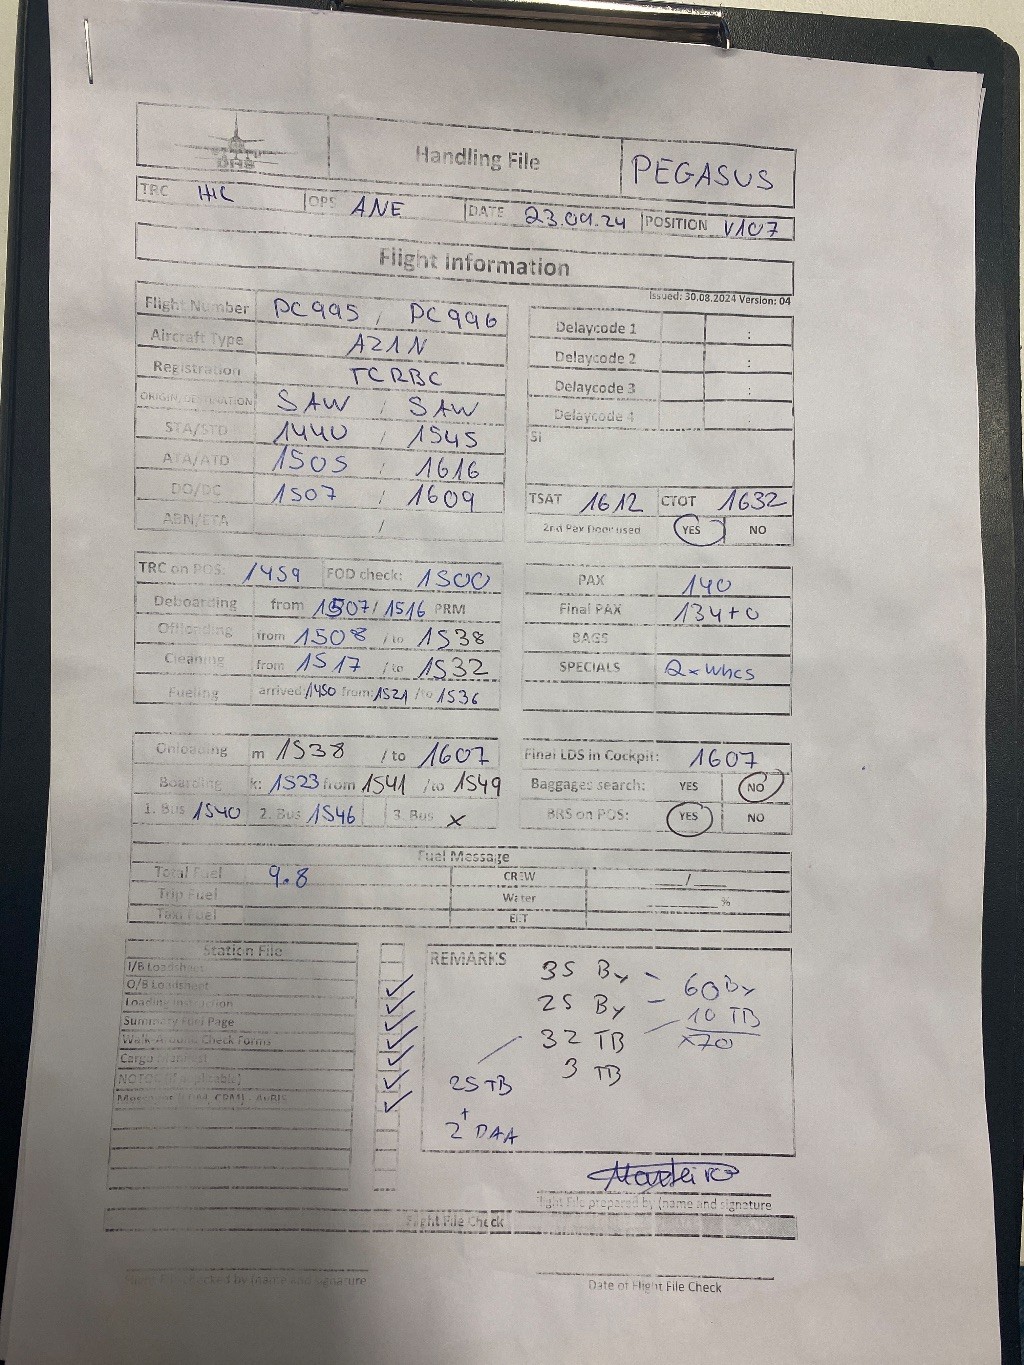 Handling File PEGASUS
TRC OPS ANE DATE 23.09.24 POSITION V107
Flight Information
Issued: 30.08.2024 Version: 04
Flight Number PC995 / PC996
Aircraft Type A21N
Registration TCRBC
ORIGIN/DESTINATION SAW / SAW
STA/STD 1440 / 1545
ATA/ATD 1505 / 1616
DO/DC 1507 / 1609
ABN/ETA /
Delaycode 1 :
Delaycode 2 :
Delaycode 3 :
Delaycode 4
SI
TSAT 1612 CTOT 1632
2nd Pax Door used YES NO
TRC on POS: 1459 FOD check: 1500
Deboarding from 1507/1516 PRM
Offloading from 1508 / to 1538
Cleaning from 1517 / to 1532
Fueling arrived: 1450 from: 1521 / to 1536
PAX 140
Final PAX 134+0
BAGS
SPECIALS 2xWHCS
Onloading m 1538 / to 1607
Boarding k: 1523 from 1541 / to 1549
1. Bus 1540 2. Bus 1546 3. Bus x
Final LDS in Cockpit: 1607
Baggages search: YES NO
BRS on POS: YES NO
Fuel Message
Total Fuel 9.8 CREW /
Trip Fuel Water %
Taxi Fuel ELT
Station File
I/B Loadsheet
O/B Loadsheet
Loading Instruction
Summary Fuel Page
Walk-Around Check Forms
Cargo Manifest
REMARKS
35 By - 60 By
25 By - 10 TB
32 TB x70
3 TB
25 TB
+
2 DAA
Flight File prepared by (name and signature
Flight File Check
Flight File checked by (name and signature
Date of Flight File Check